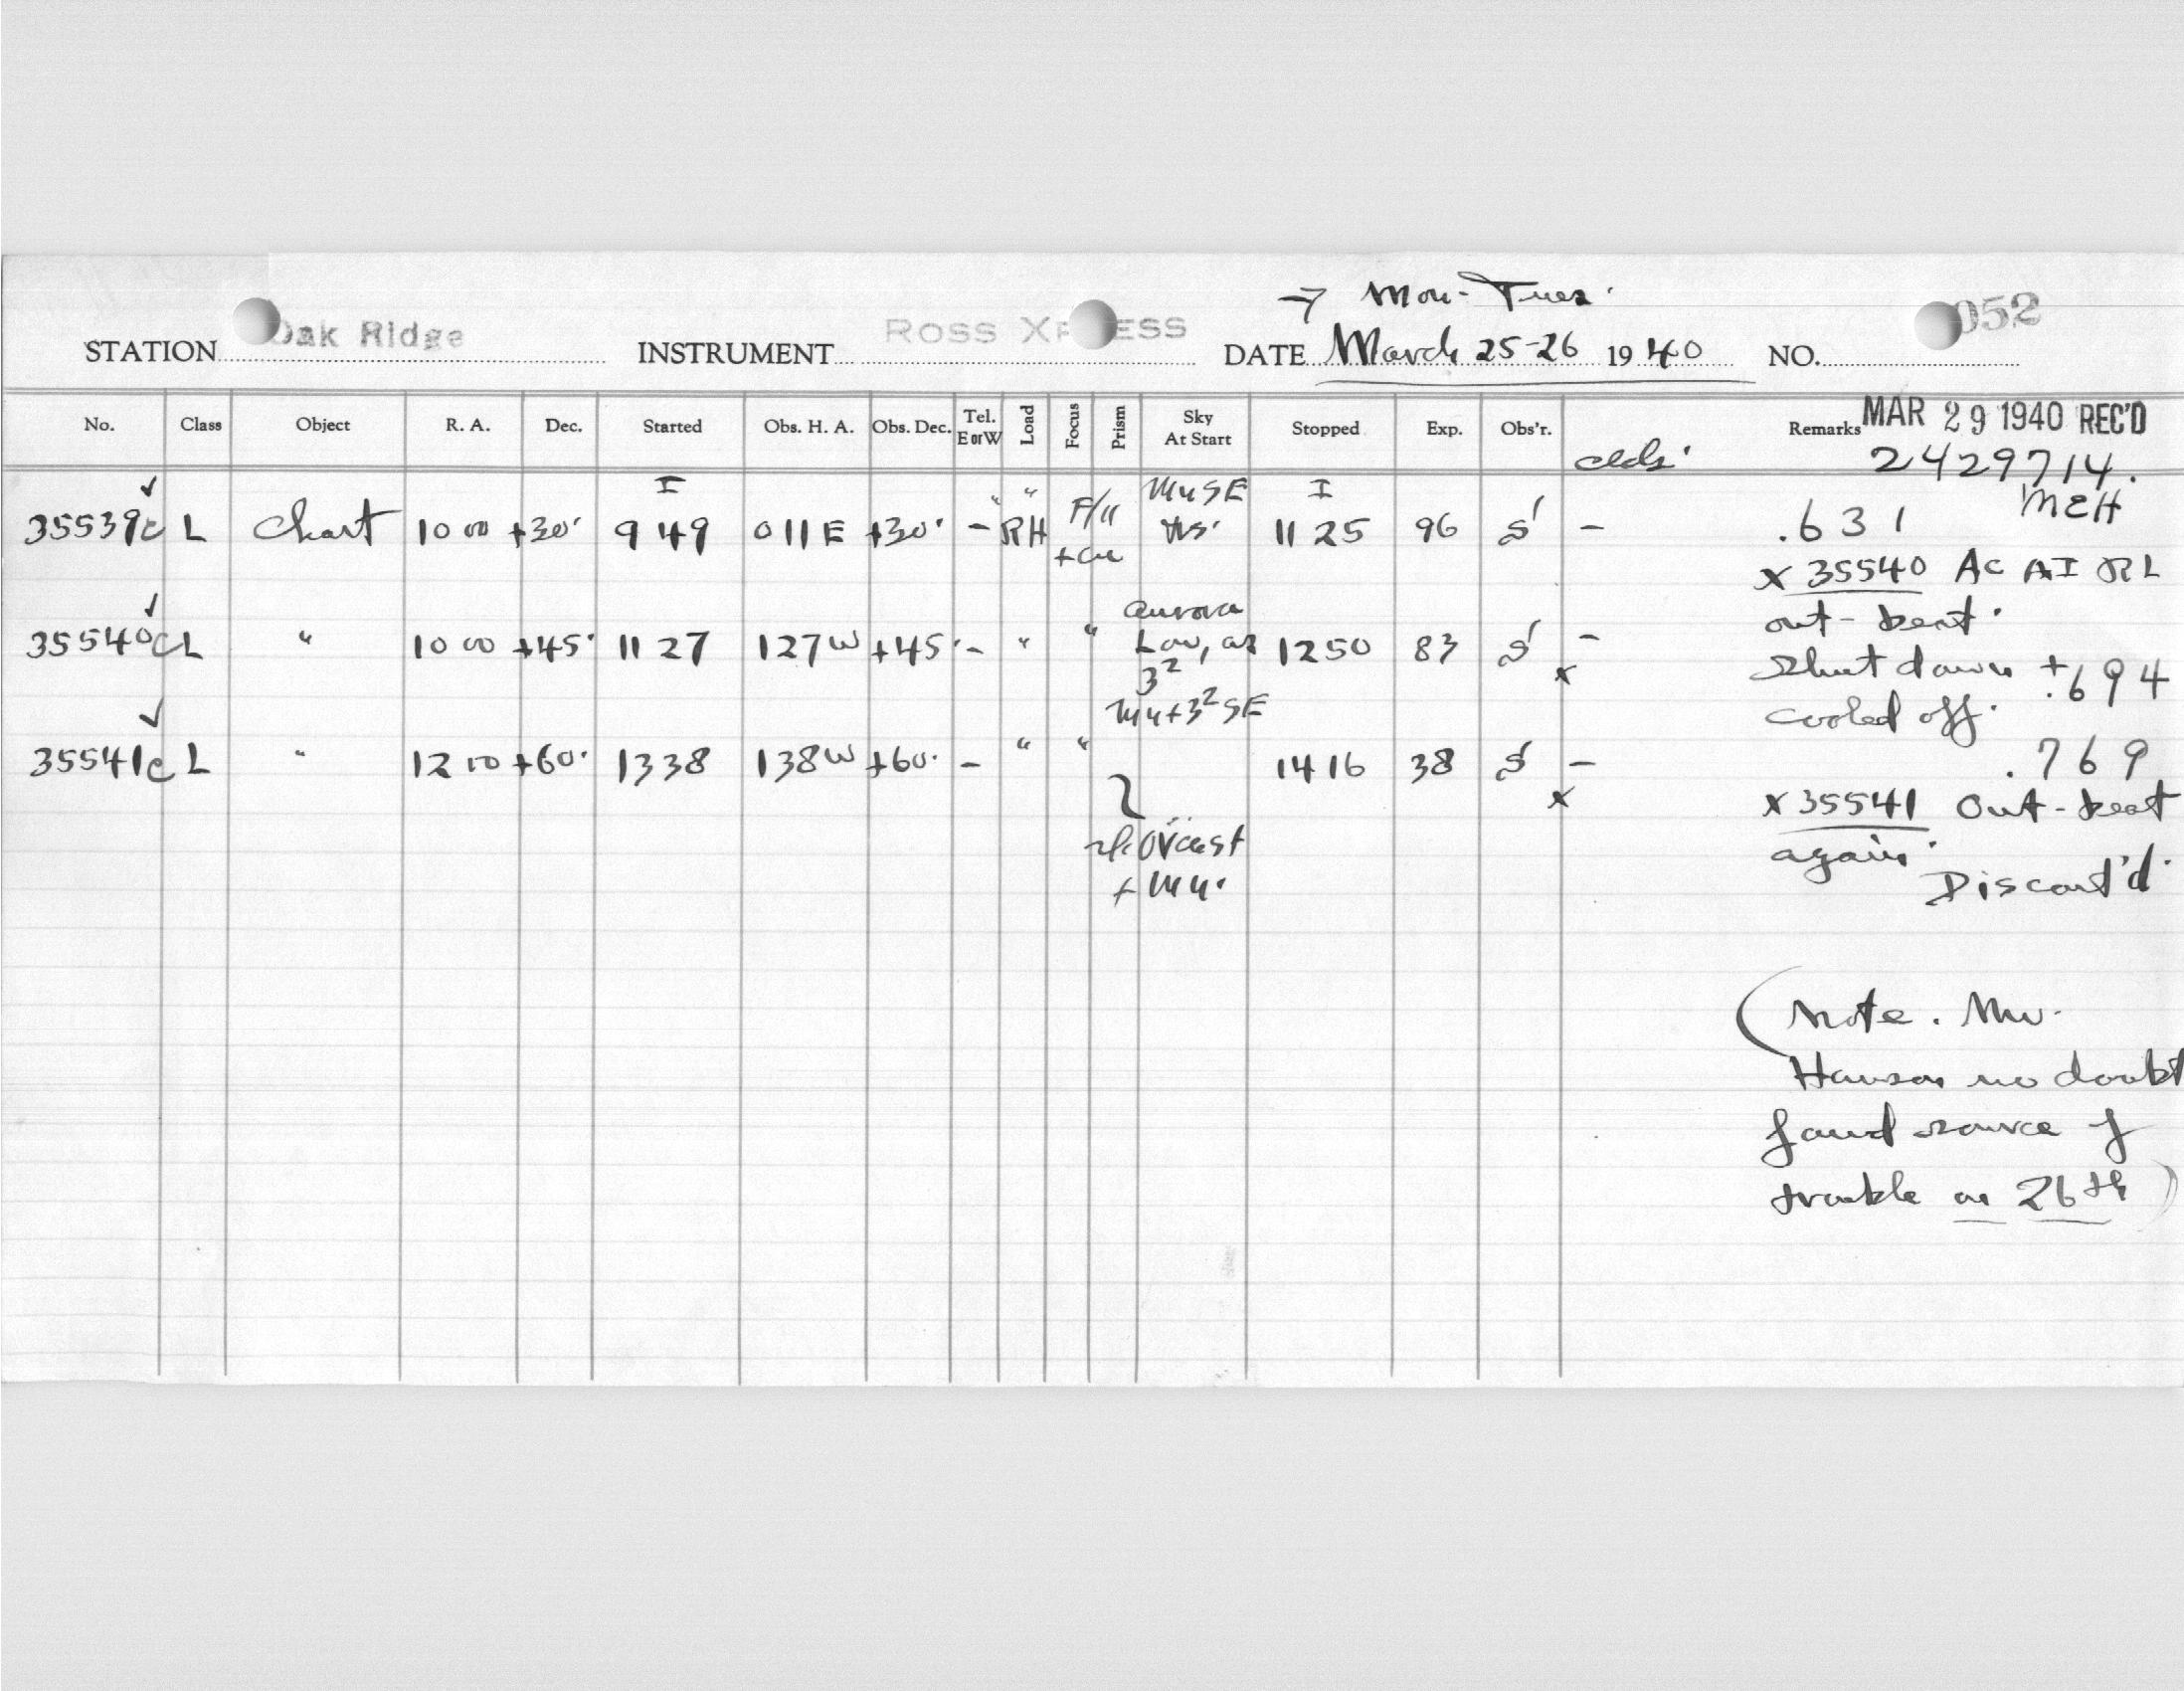 → Mon-Tues.
STATION Oak Ridge INSTRUMENT ROSS XPRESS DATE March 25-26 1940 NO. 052
No. Class Object R. A. Dec. Started Obs. H. A. Obs. Dec. Tel. E or W Load Focus Prism Sky At Start Stopped Exp. Obs'r. clds. Remarks MAR 29 1940 REC'D
2429714.
MEH
35539c L Chart 10 00 +30° I 9 49 0 11 E +30° - " RH " F/11 + cu Mu SE I 11 25 96 S' - .631
x 35540 AC AI
out-beat.
35540c L " 10 00 +45° 11 27 1 27 W +45° - " " aurora Low, as 3² 12 50 83 S' - x
Shut down + .694
cooled off.
35541c L " 12 00 +60° 13 38 1 38 W +60° - " " Mu + 3² SE 14 16 38 S' - x .769
x 35541 Out-beat
again.
Discont'd.
Ovcast
+ Mu.
(Note. Mr.
Hanson no doubt
found source of
trouble on 26th)